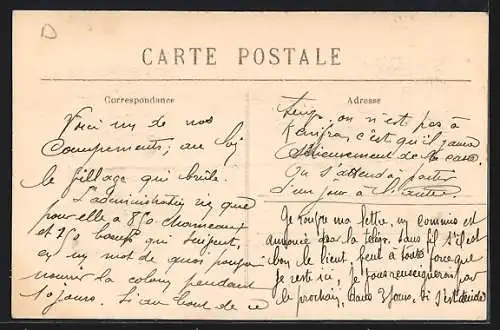 D
CARTE POSTALE
Correspondance
Voici un de nos
Campements, au loin
le village qui brûle.
L'administration
pour elle a 850 chameaux
et 250 boeufs qui suivent,
en un mot de quoi
nourrir la colonne pendant
10 jours. Si au bout de ce
Adresse
temps, on n'est pas à
Kenifra, c'est qu'il y aura
sérieusement de la casse.
On s'attend à partir
d'un jour à l'autre.
Je rouvre ma lettre, un commis est
annoncé par la télég. sans fil s'il est
bon le lieut. peut à toute force que
je reste ici, je vous renseignerai par
le prochain, dans 2 jours, si s'est décidé